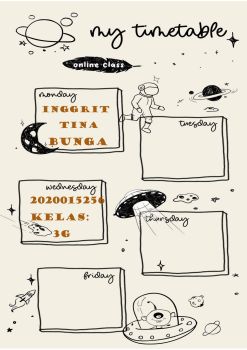 my timetable
online class
monday
INGGRIT
TINA
BUNGA
tuesday
wednesday
2020015256
KELAS:
3G
thursday
friday